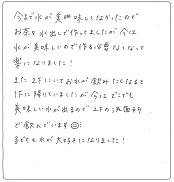 今まで水が美味しくなかったので
お茶を水出しで作ってましたが今は
水が美味しいので作る必要なくなって
楽になりました!
また2Fにいてお水が飲みたくなると
下に降りていましたが今はどこでも
美味しい水が出るので2Fの洗面所
で飲んでいます
子どもも水が大好きになりました!